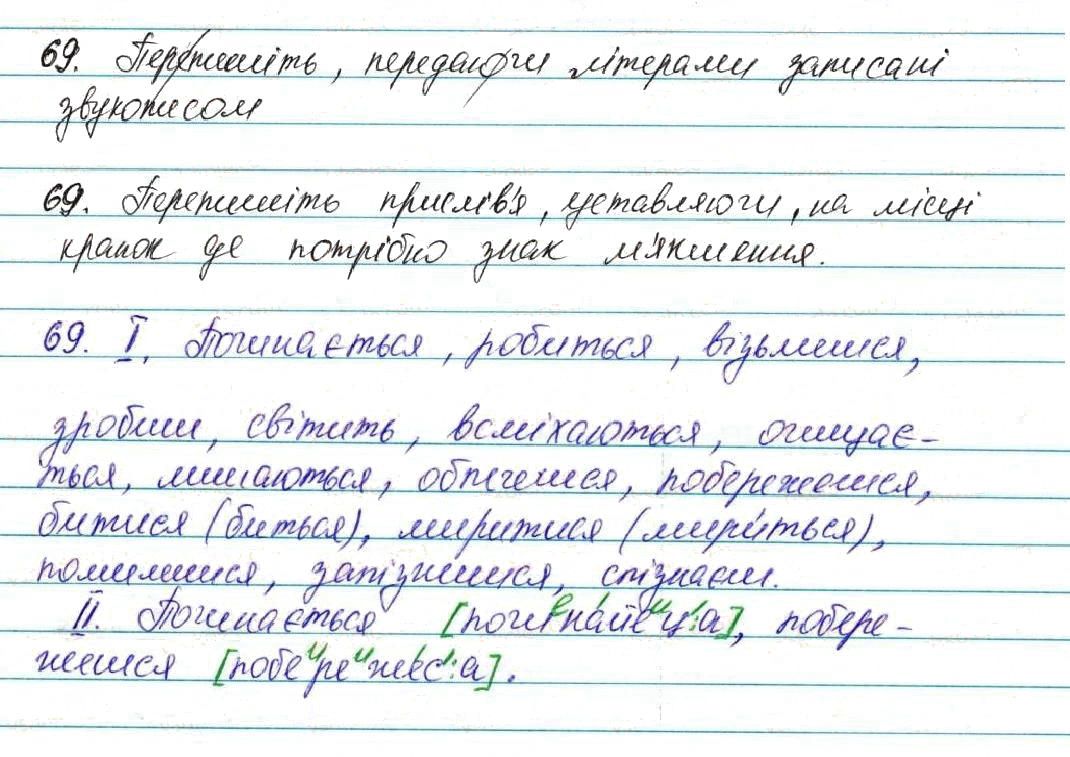 69. Перепишіть, передаючи літерами записані
звукописом
69. Перепишіть прислів'я, уставляючи, на місці
крапок де потрібно знак м'якшення.
69. I. Починається, робиться, візьмешся,
зробиш, світить, всміхаються, очищає-
ться, лишаються, обпечешся, побережешся,
битися (биться), миритися (мириться),
помилишся, запізнишся, спізнаєш.
II. Починається [почиᵉна́йеᶦц':а], побере-
жешся [побеᶦреᶦже́с':а].